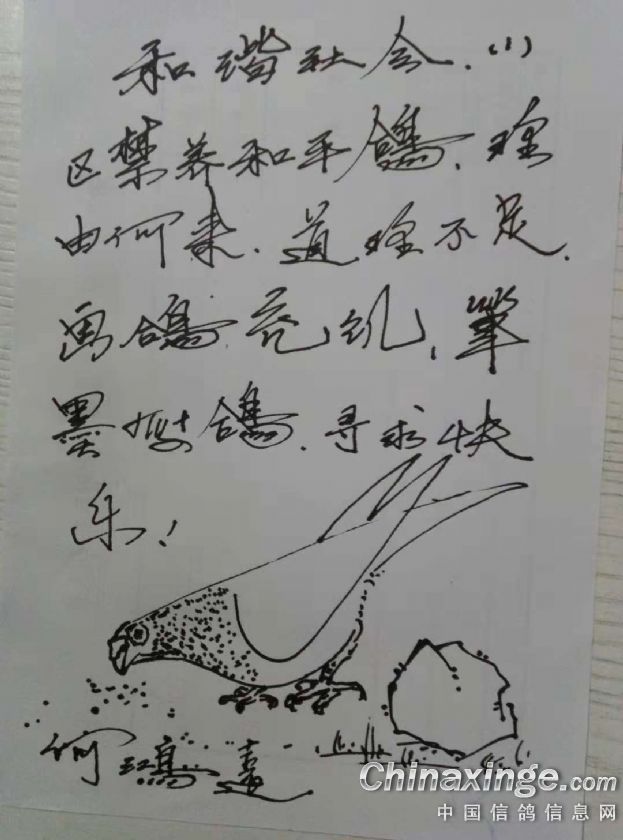 和谐社会.小
区禁养和平鸽.理
由何来.道理不足.
画鸽充饥,筆
墨鸽.寻求快
乐!
何
Chinaxinge.com
中国信鸽信息网